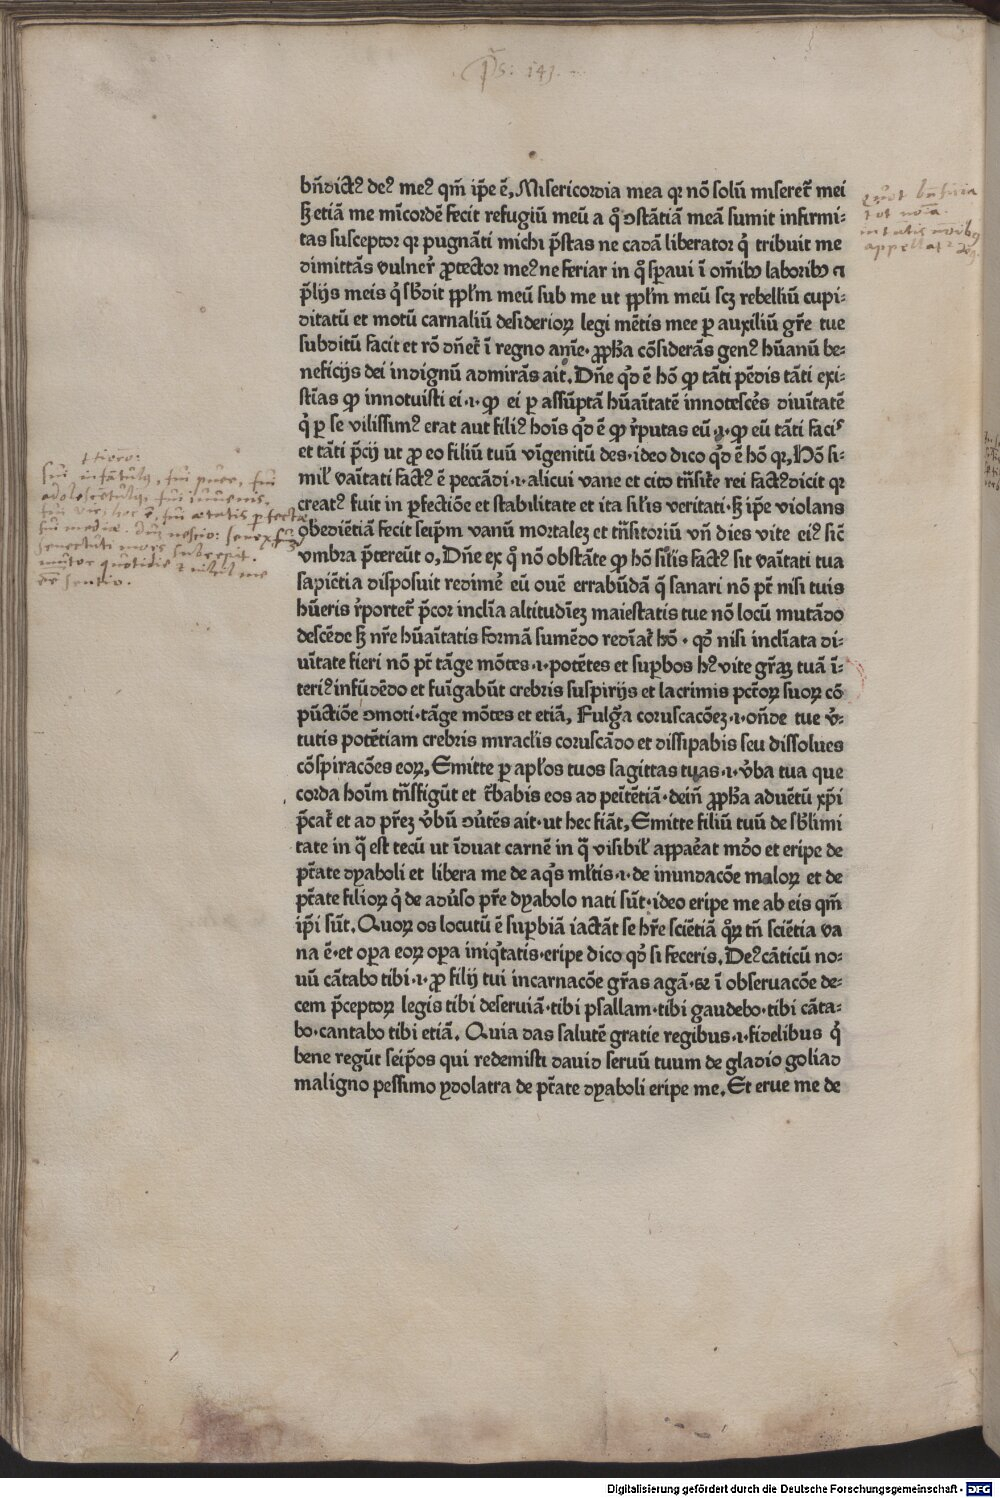 Ps: 143.
bn̄dictꝰ deꝰ meꝰ qm̄ ip̄e ē, Misericordia mea qꝛ nō solū miseret᷑ mei
ꝫ etiā me mīcordē fecit refugiū meū a q̊ ↄstātiā meā sumit infirmi⸗
tas susceptor qꝛ pugnāti michi p̄stas ne cadā liberator q̇ tribuit me
dimittās vulner᷑ ꝓtector meꝰ ne feriar in q̊ sꝑaui ī om̄ibꝰ laboribꝰ ⁊
p̄lijs meis q̇ sb̓dit ppl̓m meū sub me ut ppl̓m meū scꝫ rebelliū cupi⸗
ditatū et motū carnaliū desiderioꝝ legi mētis mee ꝑ auxiliū gr̄e tue
subditū facit et rō dn̄et᷑ ī regno aīe· ꝓph̄a cōsiderās genꝰ hūanū be⸗
neficijs dei indignū admirās ait. Dn̄e qͥd ē hō ꝙ tāti pēdis tāti exi⸗
stīas ꝙ innotuisti ei·i·ꝙ ei ꝑ assūptā hūaītatē innotesces diuītatē
q̇ ꝑ se vilissimꝰ erat aut filiꝰ hoīs qͥd ē ꝙ r̓putas eū·i·ꝙ eū tāti facis
et tāti p̄cij ut ꝓ eo filiū tuū vīgenitū des·ideo dico qͥd ē hō qꝛ, Hō si⸗
mil̓ vaītati factꝰ ē peccādi·i·alicui vane et cito trāsit᷑e rei factꝰ dicit qꝛ
creatꝰ fuit in ꝑfectiōe et stabilitate et ita sil̓is veritati·ꝫ ip̄e violans
obediētiā fecit seip̄m vanū mortalez et trāsitoriū vn̄ dies vite eiꝰ sic̄
vmbra p̄tereūt o, Dn̄e ex q̊ nō obstāte ꝙ hō sil̓is factꝰ sit vaītati tua
sapiētia disposuit redime᷑ eū ouē errabūdā q̄ sanari nō pt̄ nisi tuis
hūeris r̓portet᷑ p̄cor inclīa altitudīez maiestatis tue nō locū mutādo
descēde ꝫ nr̄e hūaītatis formā sumēdo redīat᷑ hō · qd̓ nisi inclīata di⸗
uītate fieri nō pt̄ tāge mōtes·i·potētes et suꝑbos hꝰ vite gr̄aꝫ tuā ī⸗
teriꝰ infūdēdo et fuīgabūt crebris suspirijs et lacrimis pctōꝝ suoꝝ cō
pūctiōe ↄmoti·tāge mōtes et etiā, Fulg̓a coruscacōez·i·on̄de tue v̓⸗
tutis potētiam crebris miracl̓is coruscādo et dissipabis seu dissolues
cōspiracōes eoꝝ, Emitte ꝑ apl̓os tuos sagittas tuas·i·v̓ba tua que
corda hoīm trāsfigūt et t̓babis eos ad peītētiā·dein̄ ꝓph̄a aduētū xp̄i
p̄cat᷑ et ad pr̄ez v̓bū ↄu̓tēs ait·ut hec fiāt, Emitte filiū tuū de sb̓limi
tate in q̄ est tecū ut īduat carnē in q̄ visibil̓ appaeat mūdo et eripe de
pt̄ate dyaboli et libera me de aqͥs ml̓tis·i·de inundacōe maloꝝ et de
pt̄ate filioꝝ q̇ de adu̓so pr̄e dyabolo nati sūt·ideo eripe me ab eis qm̄
ip̄i sūt. Quoꝝ os locutū ē suꝑbiā iactāt se hr̄e sciētiā q̊ꝝ tn̄ sciētia va
na ē·et oꝑa eoꝝ oꝑa iniqͥtatis·eripe dico qd̓ si feceris, Deꝰ cāticū no⸗
uū cātabo tibi·i·ꝓ filij tui incarnacōe gr̄as agā·⁊ ī obseruacōe de⸗
cem p̄ceptoꝝ legis tibi deseruiā·tibi psallam·tibi gaudebo·tibi cāta⸗
bo·cantabo tibi etiā. Quia das salutē gratie regibus·i·fidelibus q̇
bene regūt seip̄os qui redemisti dauid seruū tuum de gladio goliad
maligno pessimo ydolatra de pt̄ate dyaboli eripe me, Et erue me de
tot noīa
appellat᷑
Hiero:
fui infātulꝰ, fui puer, fui
adolescētulꝰ, fui iuuenis,
senectuti mors subrepit.
quotidie et nihil me
sentio.
Digitalisierung gefördert durch die Deutsche Forschungsgemeinschaft · DFG